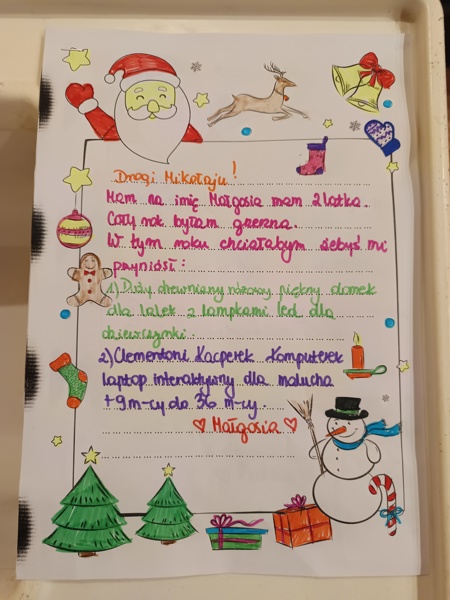 Drogi Mikołaju!
Mam na imię Małgosia mam 2 latka.
Cały rok byłam grzeczna.
W tym roku chciałabym żebyś mi
przyniósł:
1) Duży drewniany różowy piękny domek
dla lalek z lampkami led dla
dziewczynki.
2) Clementoni Kacperek Komputerek
laptop interaktywny dla malucha
+9 m-cy do 36 m-cy.
♡ Małgosia ♡